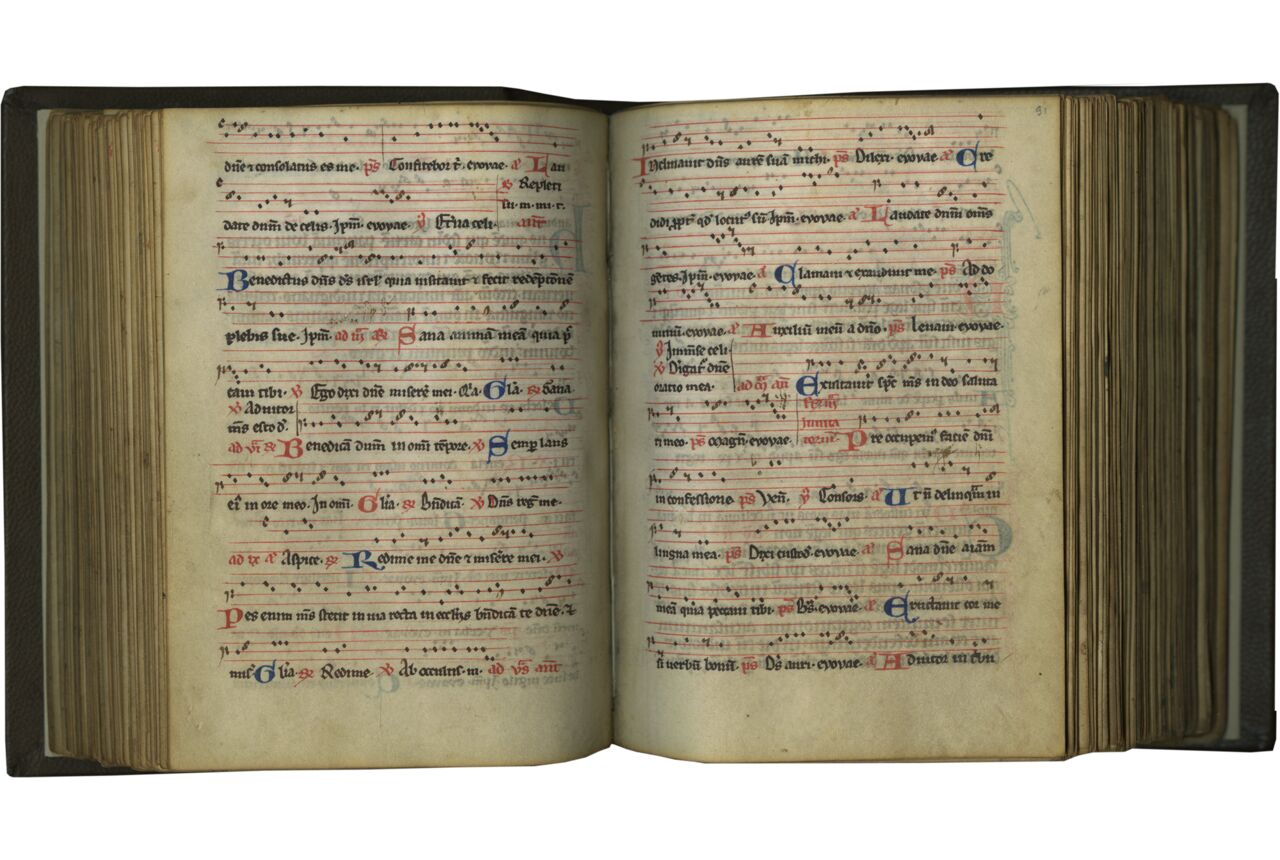 dn̄e ⁊ consolatus es me. p̄s Confitebor t̄. evovae. a᷒ Lau
R̷ Repleti
su. m. mi. r.
date dnm̄ de celis. Ip̄m. evovae. v̷ Et̄na celi. ant̄
Benedictus dn̄s ds̄ isrl̄ quia uisitauit ⁊ fecit redēptionē
plebis sue. Ip̄m. ad iij R̷ Sana animā meā quia p̄
caui tibi. v̷ Ego dixi dn̄e miserē mei. Gl̄a. R̷ Sana
v̷ Adiutor
m̄s esto d̄.
ad vī R̷ Benedicā dnm̄ in om̄i tēpore. v̷ Semp̄ laus
eī in ore meo. In om̄i. Gl̄ia. R̷ Bn̄dicā. v̷ Dn̄s reḡ me.
ad ix a᷒ Aspice. R̷ Redime me dn̄e ⁊ miserē mei. v̷
Pes enim m̄s stetit in uia recta in eccl̄iis bn̄dicā te dn̄e. ⁊
mis̄ Gl̄ia. R̷ Redime. v̷ Ab occultis. m. ad v̄s ant̄
91
Inclinauit dn̄s aurē suā michi. p̄s Dilexi. evovae a᷒ Cre
didi ꝓpt̄ qd̄ locut᷒ sū. Ip̄m. evovae. a᷒ Laudate dnm̄ om̄s
gētes. Ip̄m. evovae. a᷒ Clamaui ⁊ exaudiuit me. p̄s Ad do
minū. evovae. a᷒ Auxiliū meū a dn̄o. p̄s Leuaui. evovae.
v̷ Immēse celi.
v̷ Digat᷒ dn̄e
oratio mea. ad m̄ an̄ Exultauit sp̄c m̄s in deo saluta
ri meo. p̄s Magn̄. evovae. Pre occupem᷒ faciē dn̄i
in confessione. p̄s Uen̄. v̷ Conf̄ois. a᷒ Ut n̄ delinquā in
lingua mea. p̄s Dixi custod̄. evovae. a᷒ Sana dn̄e aīam
meā quia peccaui tibi. p̄s Bs̄. evovae. a᷒ Eructauit cor me
ū uerbū bonū. p̄s Ds̄ auri. evovae. a᷒ Adiutor in tbu